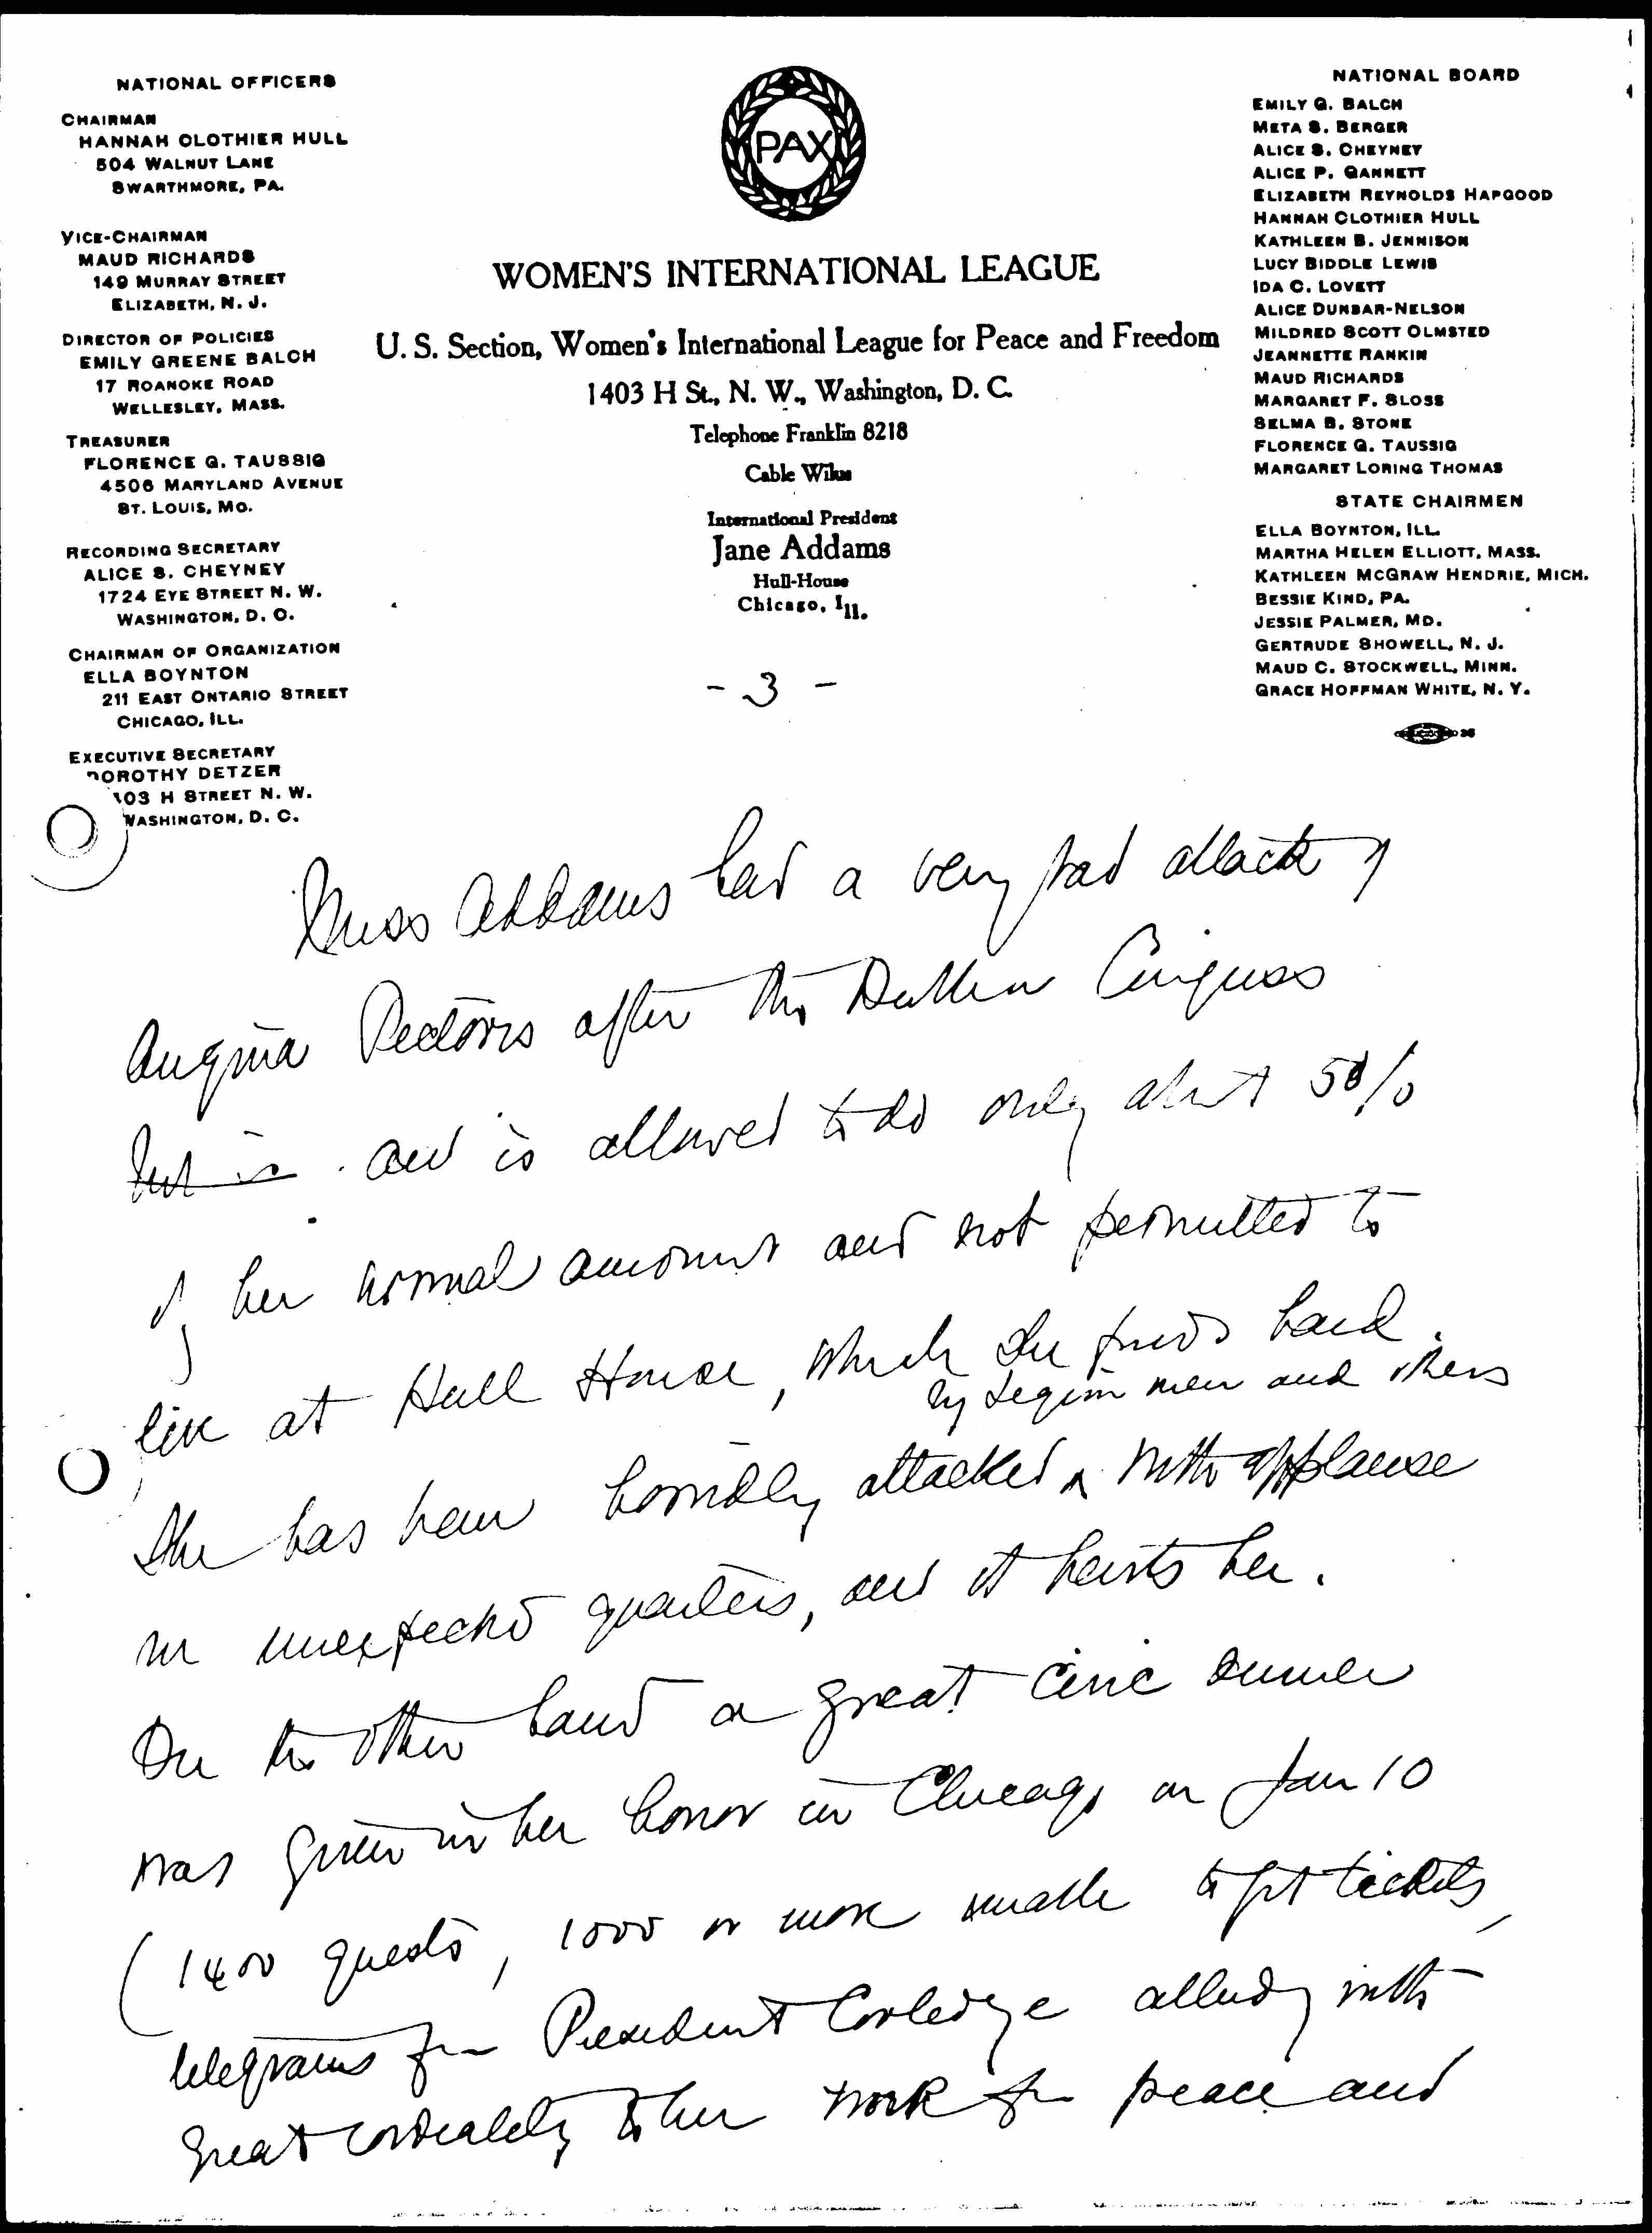 NATIONAL OFFICERS
CHAIRMAN
HANNAH CLOTHIER HULL
504 WALNUT LANE
SWARTHMORE, PA.
VICE-CHAIRMAN
MAUD RICHARDS
149 MURRAY STREET
ELIZABETH, N. J.
DIRECTOR OF POLICIES
EMILY GREENE BALCH
17 ROANOKE ROAD
WELLESLEY, MASS.
TREASURER
FLORENCE G. TAUSSIG
4506 MARYLAND AVENUE
ST. LOUIS, MO.
RECORDING SECRETARY
ALICE S. CHEYNEY
1724 EYE STREET N. W.
WASHINGTON, D. C.
CHAIRMAN OF ORGANIZATION
ELLA BOYNTON
211 EAST ONTARIO STREET
CHICAGO, ILL.
EXECUTIVE SECRETARY
DOROTHY DETZER
1403 H STREET N. W.
WASHINGTON, D. C.
PAX
WOMEN'S INTERNATIONAL LEAGUE
U. S. Section, Women's International League for Peace and Freedom
1403 H St., N. W., Washington, D. C.
Telephone Franklin 8218
Cable Wilus
International President
Jane Addams
Hull-House
Chicago, Ill.
NATIONAL BOARD
EMILY G. BALCH
META S. BERGER
ALICE S. CHEYNEY
ALICE P. GANNETT
ELIZABETH REYNOLDS HAPGOOD
HANNAH CLOTHIER HULL
KATHLEEN B. JENNISON
LUCY BIDDLE LEWIS
IDA C. LOVETT
ALICE DUNBAR-NELSON
MILDRED SCOTT OLMSTED
JEANNETTE RANKIN
MAUD RICHARDS
MARGARET F. SLOSS
SELMA B. STONE
FLORENCE G. TAUSSIG
MARGARET LORING THOMAS
STATE CHAIRMEN
ELLA BOYNTON, ILL.
MARTHA HELEN ELLIOTT, MASS.
KATHLEEN MCGRAW HENDRIE, MICH.
BESSIE KIND, PA.
JESSIE PALMER, MD.
GERTRUDE SHOWELL, N. J.
MAUD C. STOCKWELL, MINN.
GRACE HOFFMAN WHITE, N. Y.
- 3 -
Miss Addams had a very bad attack of
Angina Pectoris after the Dublin Congress
but is . and is allowed to do only about 50%
of her normal amount and not permitted to
live at Hull House, which she finds hard.
by Legion men and others
She has been horridly attacked ^ with applause
in unexpected quarters, and it hurts her.
On the other hand a great civic dinner
was given in her honor in Chicago on Jan 10
(1400 guests, 1000 or more unable to get tickets,
telegrams from President Coolidge alluding with
great cordiality to her work for peace and